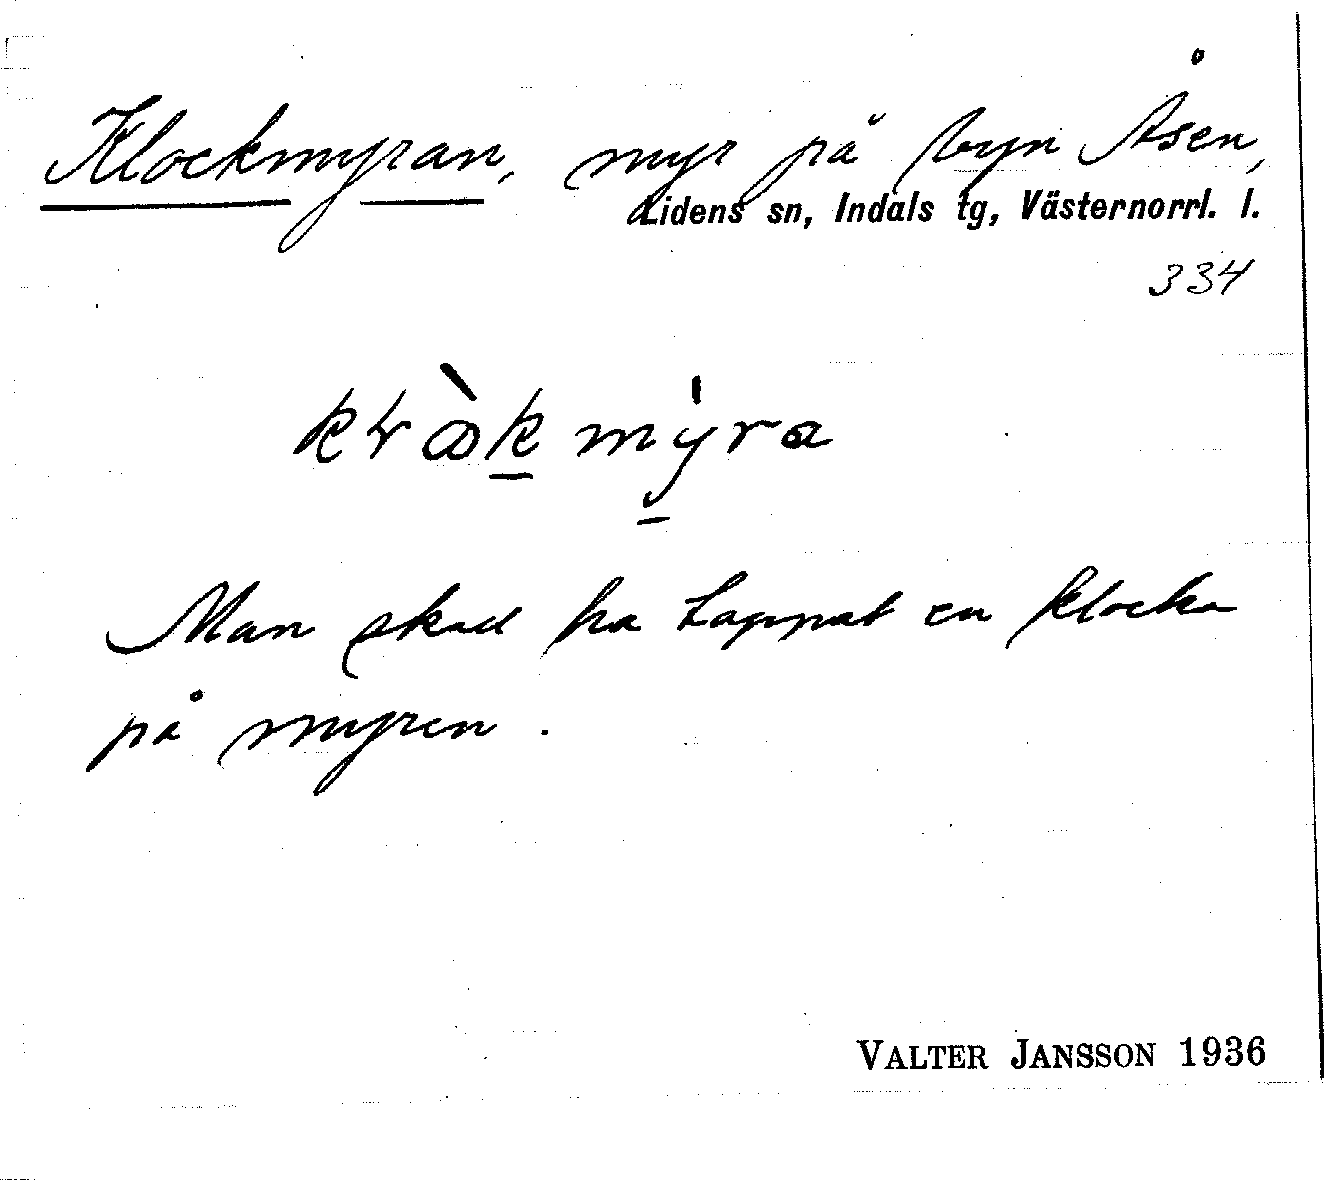 Klockmyran, myr på byn Åsen,
Lidens sn, Indals tg, Västernorrl. l.
334
Man skall ha tappat en klocka
på myren.
VALTER JANSSON 1936